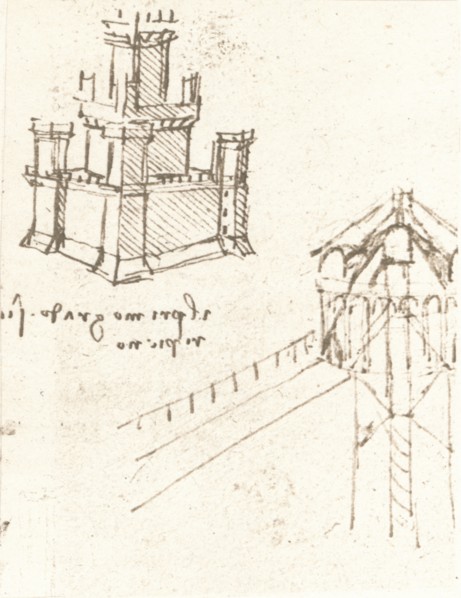 il primo grado
ripieno